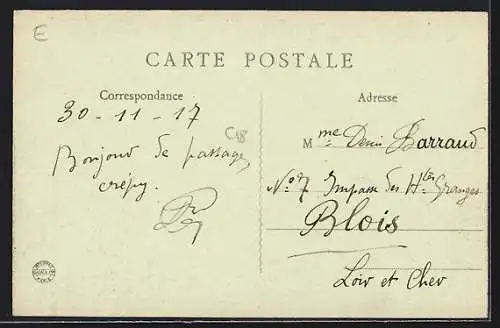 E
CARTE POSTALE
Correspondance
30-11-17
C18
Bonjour de passage
crépy.
Adresse
Mme Denis Barraud
No 7 Impasse des Htes Granges
Blois
Loir et Cher